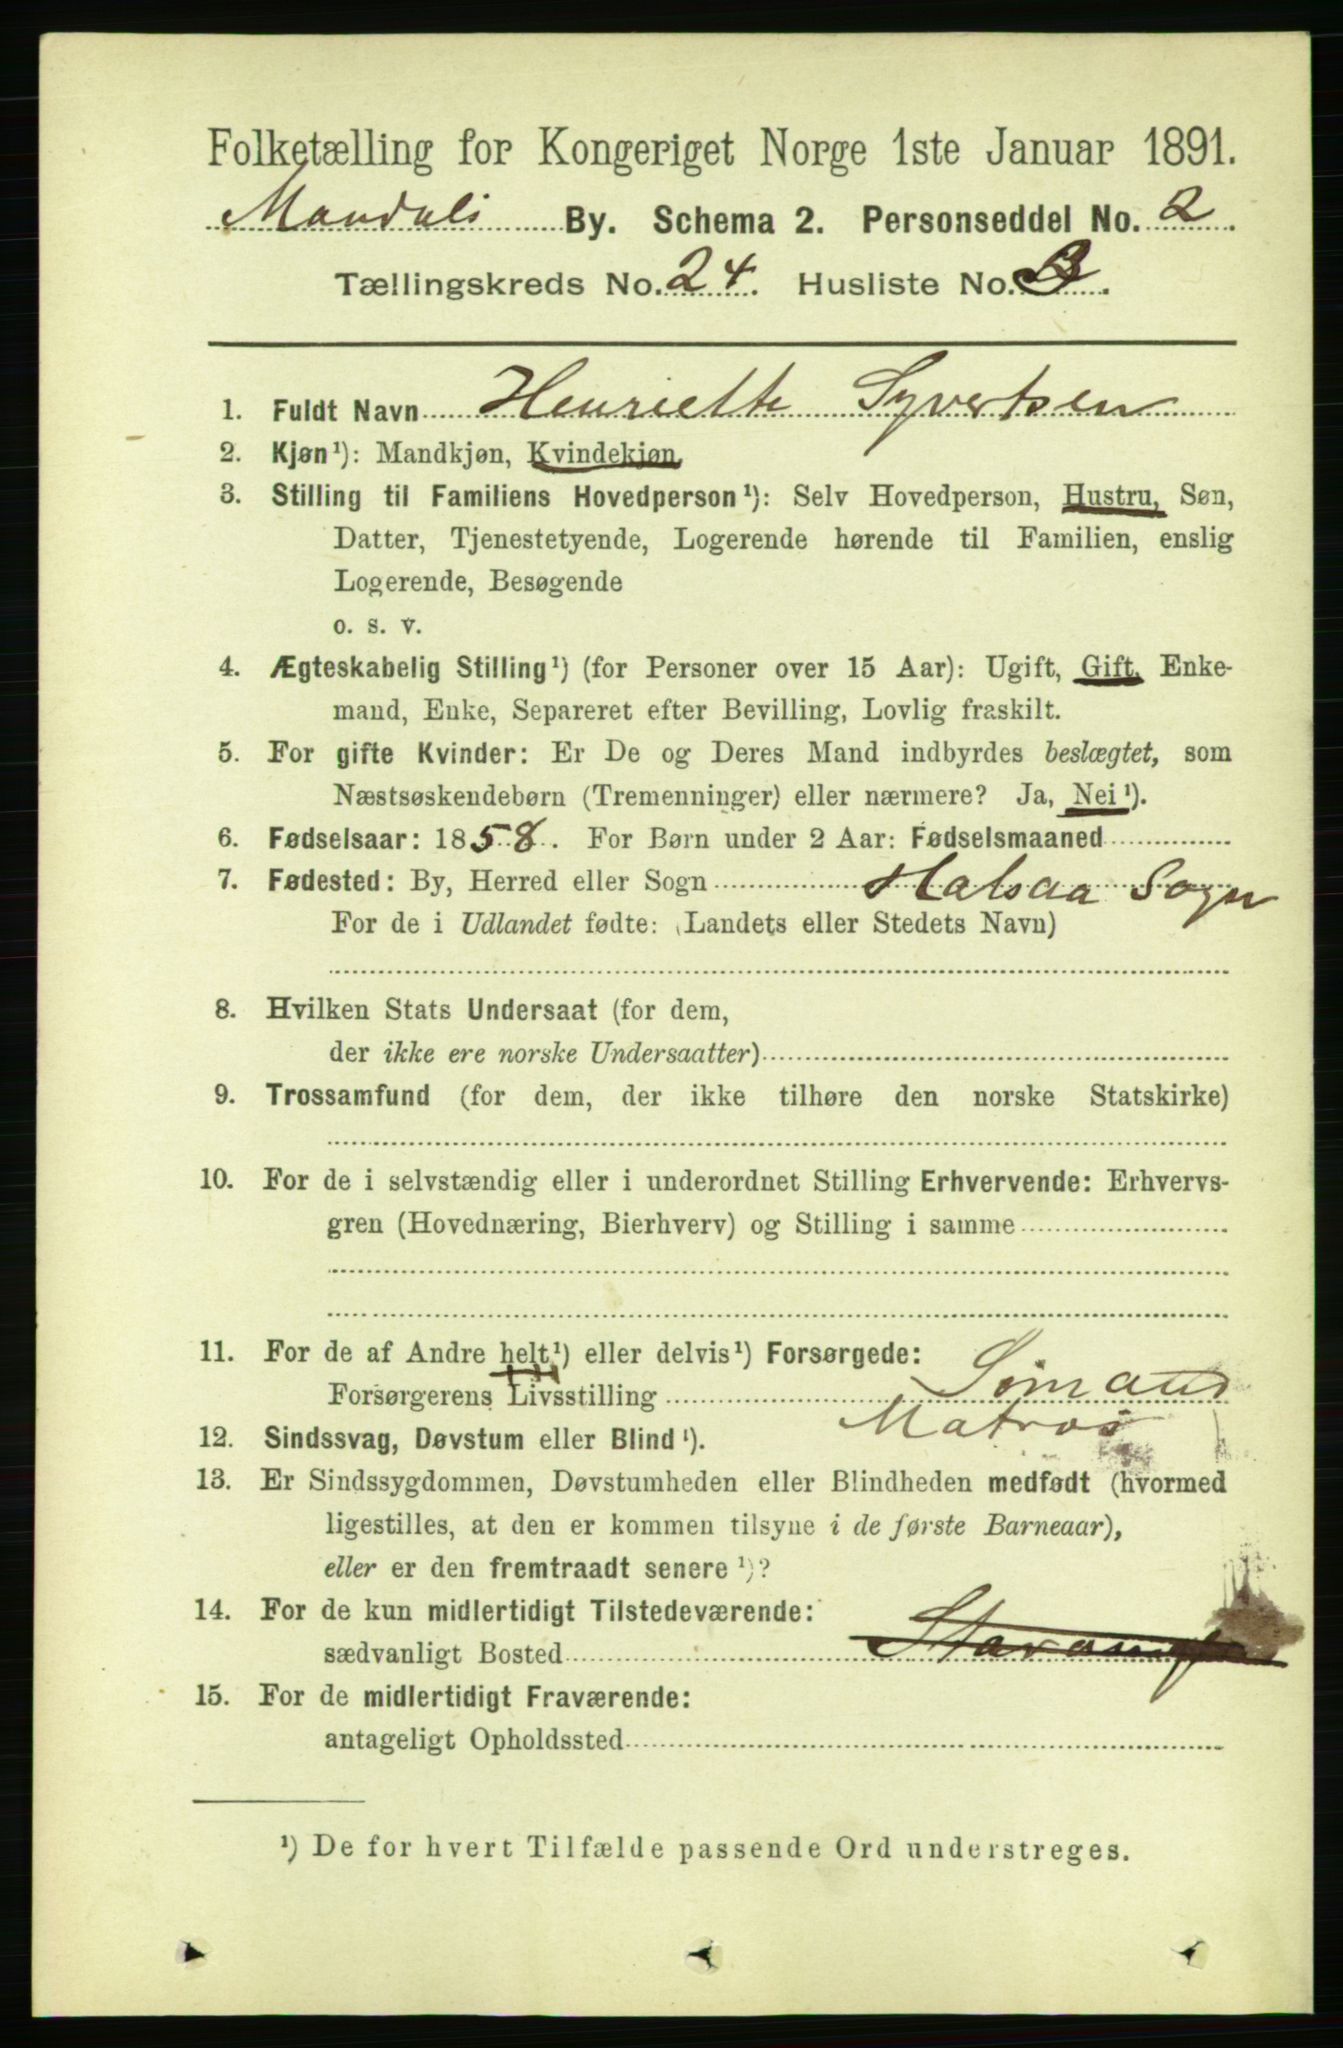 Folketælling for Kongeriget Norge 1ste Januar 1891.
Mandals By. Schema 2. Personseddel No. 2.
Tællingskreds No. 24. Husliste No. 3.
1. Fuldt Navn Henriette Syvertsen
2. Kjøn¹): Mandkjøn, Kvindekjøn.
3. Stilling til Familiens Hovedperson¹): Selv Hovedperson, Hustru, Søn,
Datter, Tjenestetyende, Logerende hørende til Familien, enslig
Logerende, Besøgende
o. s. v.
4. Ægteskabelig Stilling¹) (for Personer over 15 Aar): Ugift, Gift, Enke-
mand, Enke, Separeret efter Bevilling, Lovlig fraskilt.
5. For gifte Kvinder: Er De og Deres Mand indbyrdes beslægtet, som
Næstsøskendebørn (Tremenninger) eller nærmere? Ja, Nei¹).
6. Fødselsaar: 1858. For Børn under 2 Aar: Fødselsmaaned
7. Fødested: By, Herred eller Sogn Halsaa Sogn
For de i Udlandet fødte: (Landets eller Stedets Navn)
8. Hvilken Stats Undersaat (for dem,
der ikke ere norske Undersaatter)
9. Trossamfund (for dem, der ikke tilhøre den norske Statskirke)
10. For de i selvstændig eller i underordnet Stilling Erhvervende: Erhvervs-
gren (Hovednæring, Bierhverv) og Stilling i samme
11. For de af Andre helt¹) eller delvis¹) Forsørgede:
Forsørgerens Livsstilling Sømand
Matros
12. Sindssvag, Døvstum eller Blind¹).
13. Er Sindssygdommen, Døvstumheden eller Blindheden medfødt (hvormed
ligestilles, at den er kommen tilsyne i de første Barneaar),
eller er den fremtraadt senere¹)?
14. For de kun midlertidigt Tilstedeværende:
sædvanligt Bosted Stavanger
15. For de midlertidigt Fraværende:
antageligt Opholdssted
¹) De for hvert Tilfælde passende Ord understreges.